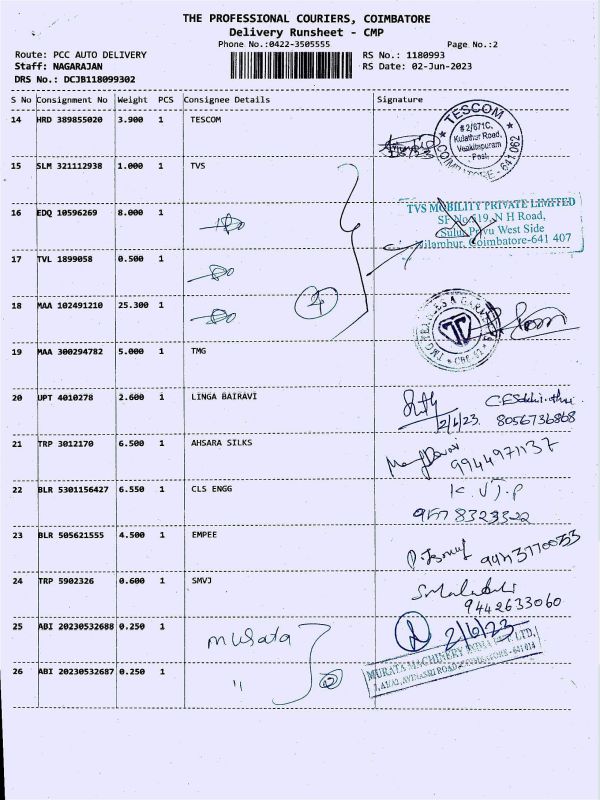 THE PROFESSIONAL COURIERS, COIMBATORE
Delivery Runsheet - CMP
Phone No.:0422-3505555 Page No.:2
Route: PCC AUTO DELIVERY RS No.: 1180993
Staff: NAGARAJAN RS Date: 02-Jun-2023
DRS No.: DCJB118099302
S No Consignment No Weight PCS Consignee Details Signature
14 HRD 389855020 3.900 1 TESCOM
TESCOM
#2/671C,
Kulathur Road,
Venkitapuram
Post,
COIMBATORE - 641 062
15 SLM 321112938 1.000 1 TVS
16 EDQ 10596269 8.000 1
TVS MOBILITY PRIVATE LIMITED
SF No 519, N H Road,
West Side
Coimbatore-641 407
17 TVL 1899058 0.500 1
18 MAA 102491210 25.300 1
4
19 MAA 300294782 5.000 1 TMG
20 UPT 4010278 2.600 1 LINGA BAIRAVI
2/6/23. 8056736868
21 TRP 3012170 6.500 1 AHSARA SILKS
9944971137
22 BLR 5301156427 6.550 1 CLS ENGG
K.V.J.P
23 BLR 505621555 4.500 1 EMPEE
24 TRP 5902326 0.600 1 SMVJ
9442633060
25 ABI 20230532688 0.250 1 murata
2/6/23
26 ABI 20230532687 0.250 1 "
2
MURATA MACHINERY INDIA PVT. LTD.